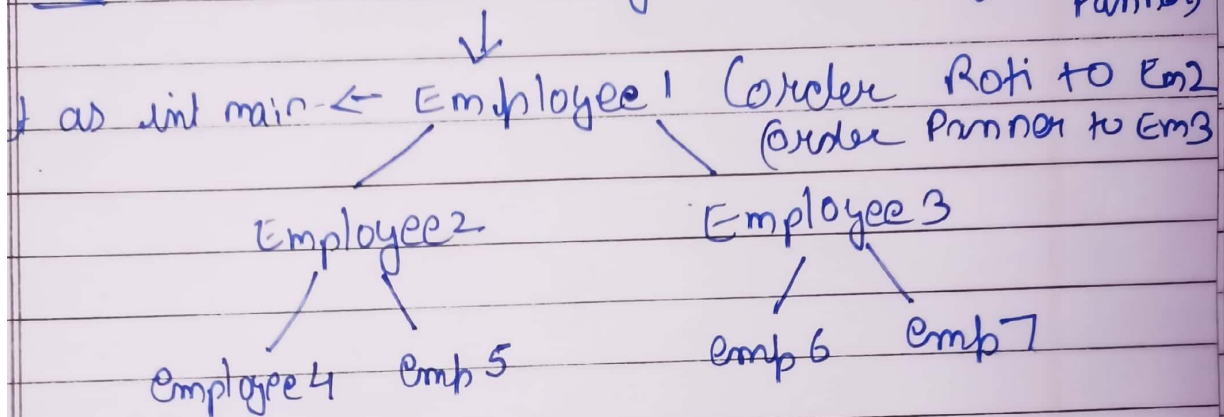 as int main ← Employee1 (order Roti to Em2
(order Panner to Em3
Employee2 Employee3
employee4 emp5 emp6 emp7